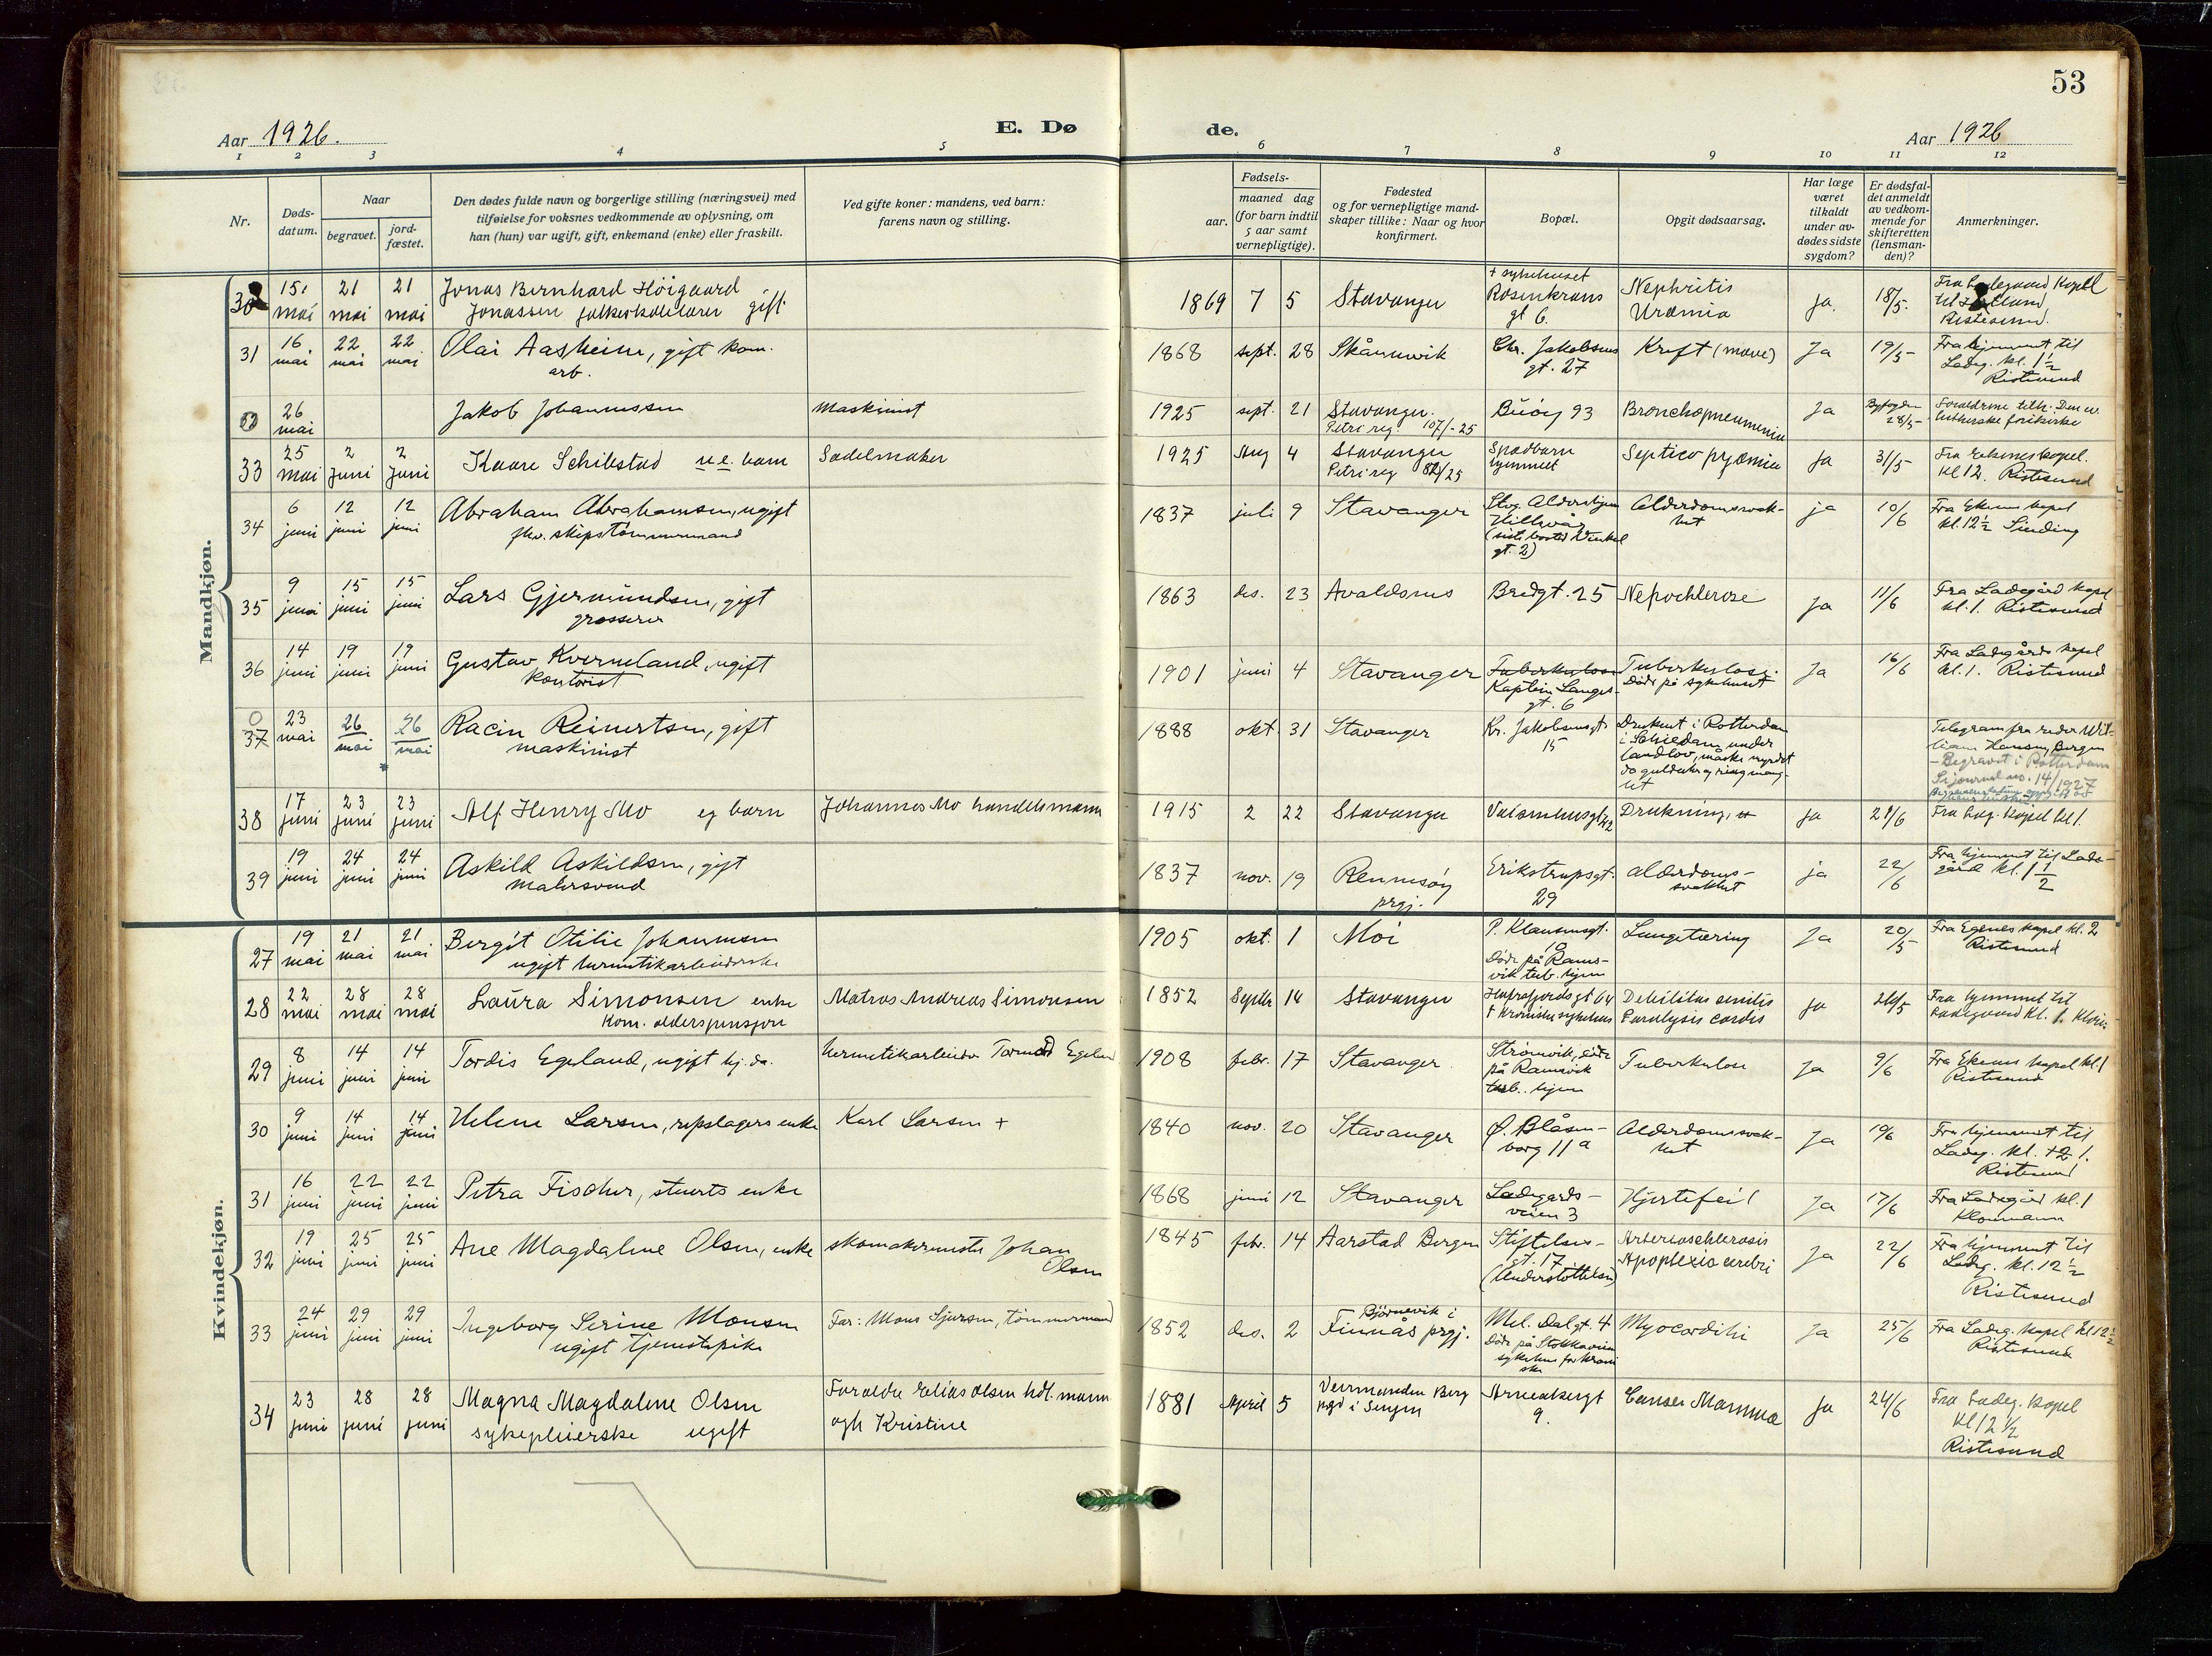 53
Aar 1926.
E. Dø
de.
Aar 1926
1 2 3 4 5 6 7 8 9 10 11 12
Nr.
Døds-
datum.
Naar
begravet.
jord-
fæstet.
Den dødes fulde navn og borgerlige stilling (næringsvei) med
tilføielse for voksnes vedkommende av oplysning, om
han (hun) var ugift, gift, enkemand (enke) eller fraskilt.
Ved gifte koner: mandens, ved barn:
farens navn og stilling.
Fødsels-
aar.
maaned dag
(for barn indtil
5 aar samt
vernepligtige).
Fødested
og for vernepligtige mand-
skaper tillike: Naar og hvor
konfirmert.
Bopæl.
Opgit dødsaarsag.
Har læge
været
tilkaldt
under av-
dødes sidste
sygdom?
Er dødsfal-
det anmeldt
av vedkom-
mende for
skifteretten
(lensman-
den)?
Anmerkninger.
Mandkjøn.
30 15. mai 21 mai 21 mai Jonas Bernhard Höigaard
Jonassen gift
1869 7 5 Stavanger + sykehuset
Rosenkrans
gt 6. Nephritis
Uræmia ja. 18/5. Fra Ladegaard Kapel
Ristesund.
31 16 mai 22 mai 22 mai Olai Aasheim, gift kom.
arb.
1868 sept. 28 Skånevik Chr. Jakobsens
gt. 27 Kreft (mave) Ja 19/5- Fra hjemmet til
Ladeg. kl. 1 1/2
Ristesund
32 26 mai Jakob Johannessen Maskinist
1925 sept. 21 Stavanger.
Petri reg. 107/-25 Buöy 93 Bronchopneumenia Ja Byfogden
28/5- Foreldrene tilh. Den ev.
lutherske frikirke
33 25 mai 2 Juni 2 Juni Kaare Schibstad u.e. barn Sadelmaker
1925 Aug 4 Stavanger
Petri reg 82/25 Spædbarn
hjemmet Septico pyæmia Ja 31/5- Fra Ekeneskapel.
Kl 12. Ristesund
34 6 juni 12 juni 12 juni Abraham Abrahamsen, ugift
fhv. skipstømmermand
1837 juli 9 Stavanger Stav. Aldershjem
Hillevåg
(sist bosted Vinkel
gt. 2) Alderdomssvak-
het ja 10/6 Fra Ekenes kapel
kl. 12 1/2 Sinding
35 9 juni 15 juni 15 juni Lars Gjermundsen, gift
grosserer
1863 des. 23 Avaldsnes Bredgt. 25 Nefrochlerose ja 11/6 Fra Ladegård kapel
kl. 1. Ristesund
36 14 juni 19 juni 19 juni Gustav Kverneland, ugift
kontorist
1901 juni 4 Stavanger Tuberkulose
Kaptein Langes-
gt. 6 Tuberkulose.
Döde på sykehuset Ja 16/6 Fra Ladegårds kapel
kl. 1. Ristesund
0
37 23 mai 26 mai 26 mai Racin Reinertsen, gift
maskinist
1888 okt. 31 Stavanger Kr. Jakobsensgt.
15 Druknet i Rotterdam
i Schiedam under
landlov, måske myrdet
da guldur og ring mang-
let Telegram fra reder Wil-
liam Hansen, Bergen
- Begravet i Rotterdam
Se journal no. 14/1927
38 17 juni 23 juni 23 juni Alf Henry Mo eg barn Johannes Mo handelsmann
1915 2 22 Stavanger Vaisenhusgt 42 Drukning, ja 21/6 Fra Lag. Kapel kl 1.
39 19 juni 24 juni 24 juni Askild Askildsen, gift
malersvend
1837 nov. 19 Rennesöy
prgj. Erikstrupsgt.
29 alderdoms-
svakhet ja 22/6 Fra hjemmet til Lade-
gård kl. 1 1/2
Kvindekjøn.
27 19 mai 21 mai 21 mai Bergit Otilie Johannesen
ugift hermetikarbeiderske
1905 okt. 1 Moi P. Klausensgt.
10
Döde på Rams-
vik tub. hjem Lungetæring Ja 20/5 Fra Egenes kapel kl. 2
Ristesund
28 22 mai 28 mai 28 mai Laura Simonsen enke
Kom. alderspensjon Matros Andreas Simonsen
1852 Septbr 14 Stavanger Hafrsfjordsgt 64
+ Kroniske sykehus Debilitas senilis
Paralysis cordis ja 26/5 Fra hjemmet til
Ladegaard Kl. 1.
29 8 juni 14 juni 14 juni Tordis Egeland, ugift hj. da. hermetikarbeider Tormod Egeland
1908 febr. 17 Stavanger Strømvik, döde
på Ramsvik
tub. hjem Tuberkulose ja 9/6 Fra Ekenes kapel kl. 1
Ristesund
30 9 juni 14 juni 14 juni Helene Larsen, repslagers enke Karl Larsen +
1840 nov. 20 Stavanger Ø. Blåsen-
borg 11 a Alderdomssvak-
het Ja 10/6 Fra hjemmet til
Ladeg. kl. 12 1.
Ristesund
31 16 juni 22 juni 22 juni Petra Fischer, stuerts enke
1868 juni 12 Stavanger Ladegårds-
veien 3 Hjertefeil Ja 17/6 Fra Ladegård kl. 1
Kloumann
32 19 juni 25 juni 25 juni Ane Magdalene Olsen, enke skomakermester Johan
Olsen
1845 febr. 14 Aarstad Bergen Stiftelses-
gt. 17
(Understöttelse) Arterioschlerosis
Apoplexia cerebri Ja 22/6 Fra hjemmet til
Ladeg. kl. 12 1/2
Ristesund
33 24 juni 29 juni 29 juni Ingeborg Serine Monsen
ugift tjenestepike Far: Mons Sjursen, tömmermand
1852 des. 2 Björnevik i
Finnås prgj. Mel. Dalgt. 4
Döde på Stokkaveien
sykehus for kroni
ske Myocarditi Ja 25/6 Fra Ladeg. kapel kl 12 1/2
Ristesund
34 23 juni 28 juni 28 juni Magna Magdalene Olsen
sykepleierske ugift Foreldre Elias Olsen hdl. mann
ogh Kristine
1881 April 5 Berg
prgd i Senjen Arneabergt
9. Canser Mamma Ja 24/6 Fra Ladeg. kapel
Kl 12 1/2
Ristesund